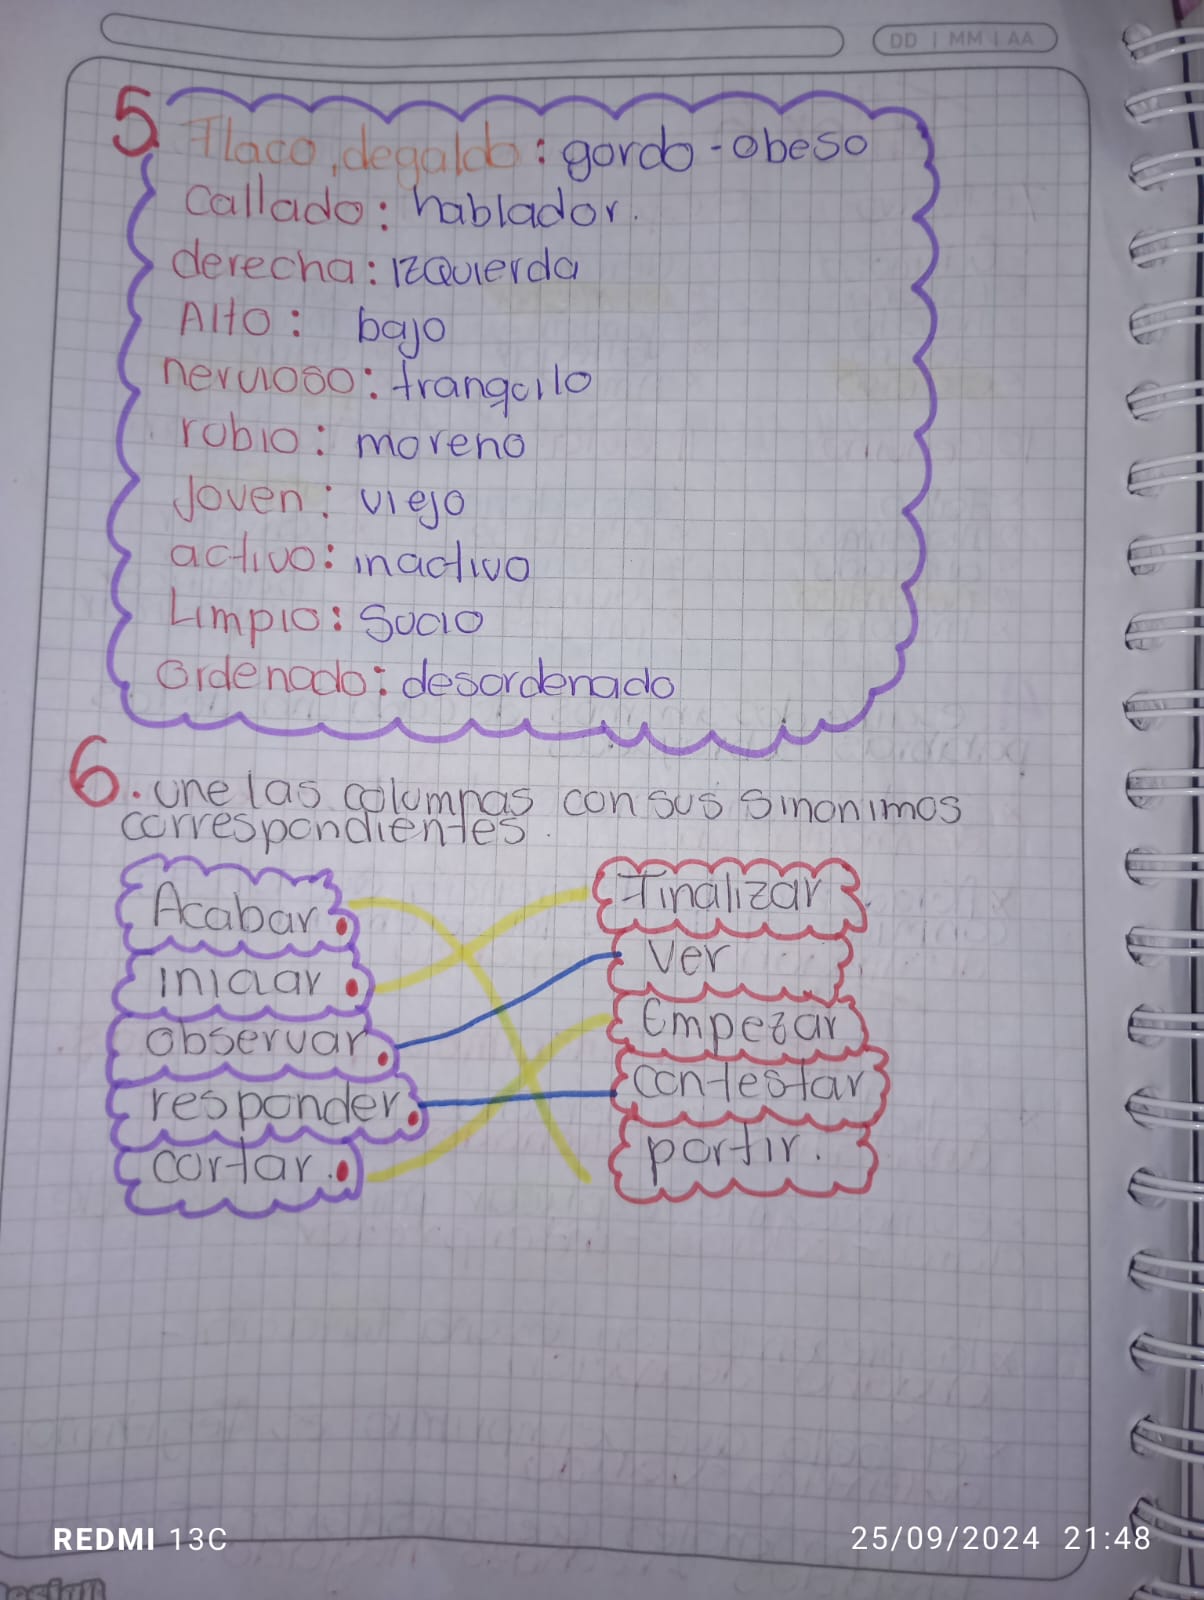 DD | MM | AA
5
Flaco, degaldo: gordo - obeso
callado: hablador.
derecha: izquierda
Alto: bajo
nervioso: tranquilo
rubio: moreno
Joven: viejo
activo: inactivo
Limpio: Sucio
ordenado: desordenado
6. une las columnas con sus sinonimos
correspondientes.
Acabar. Finalizar
iniciar. Ver
observar. Empezar
responder. contestar
cortar. partir.
REDMI 13C 25/09/2024 21:48